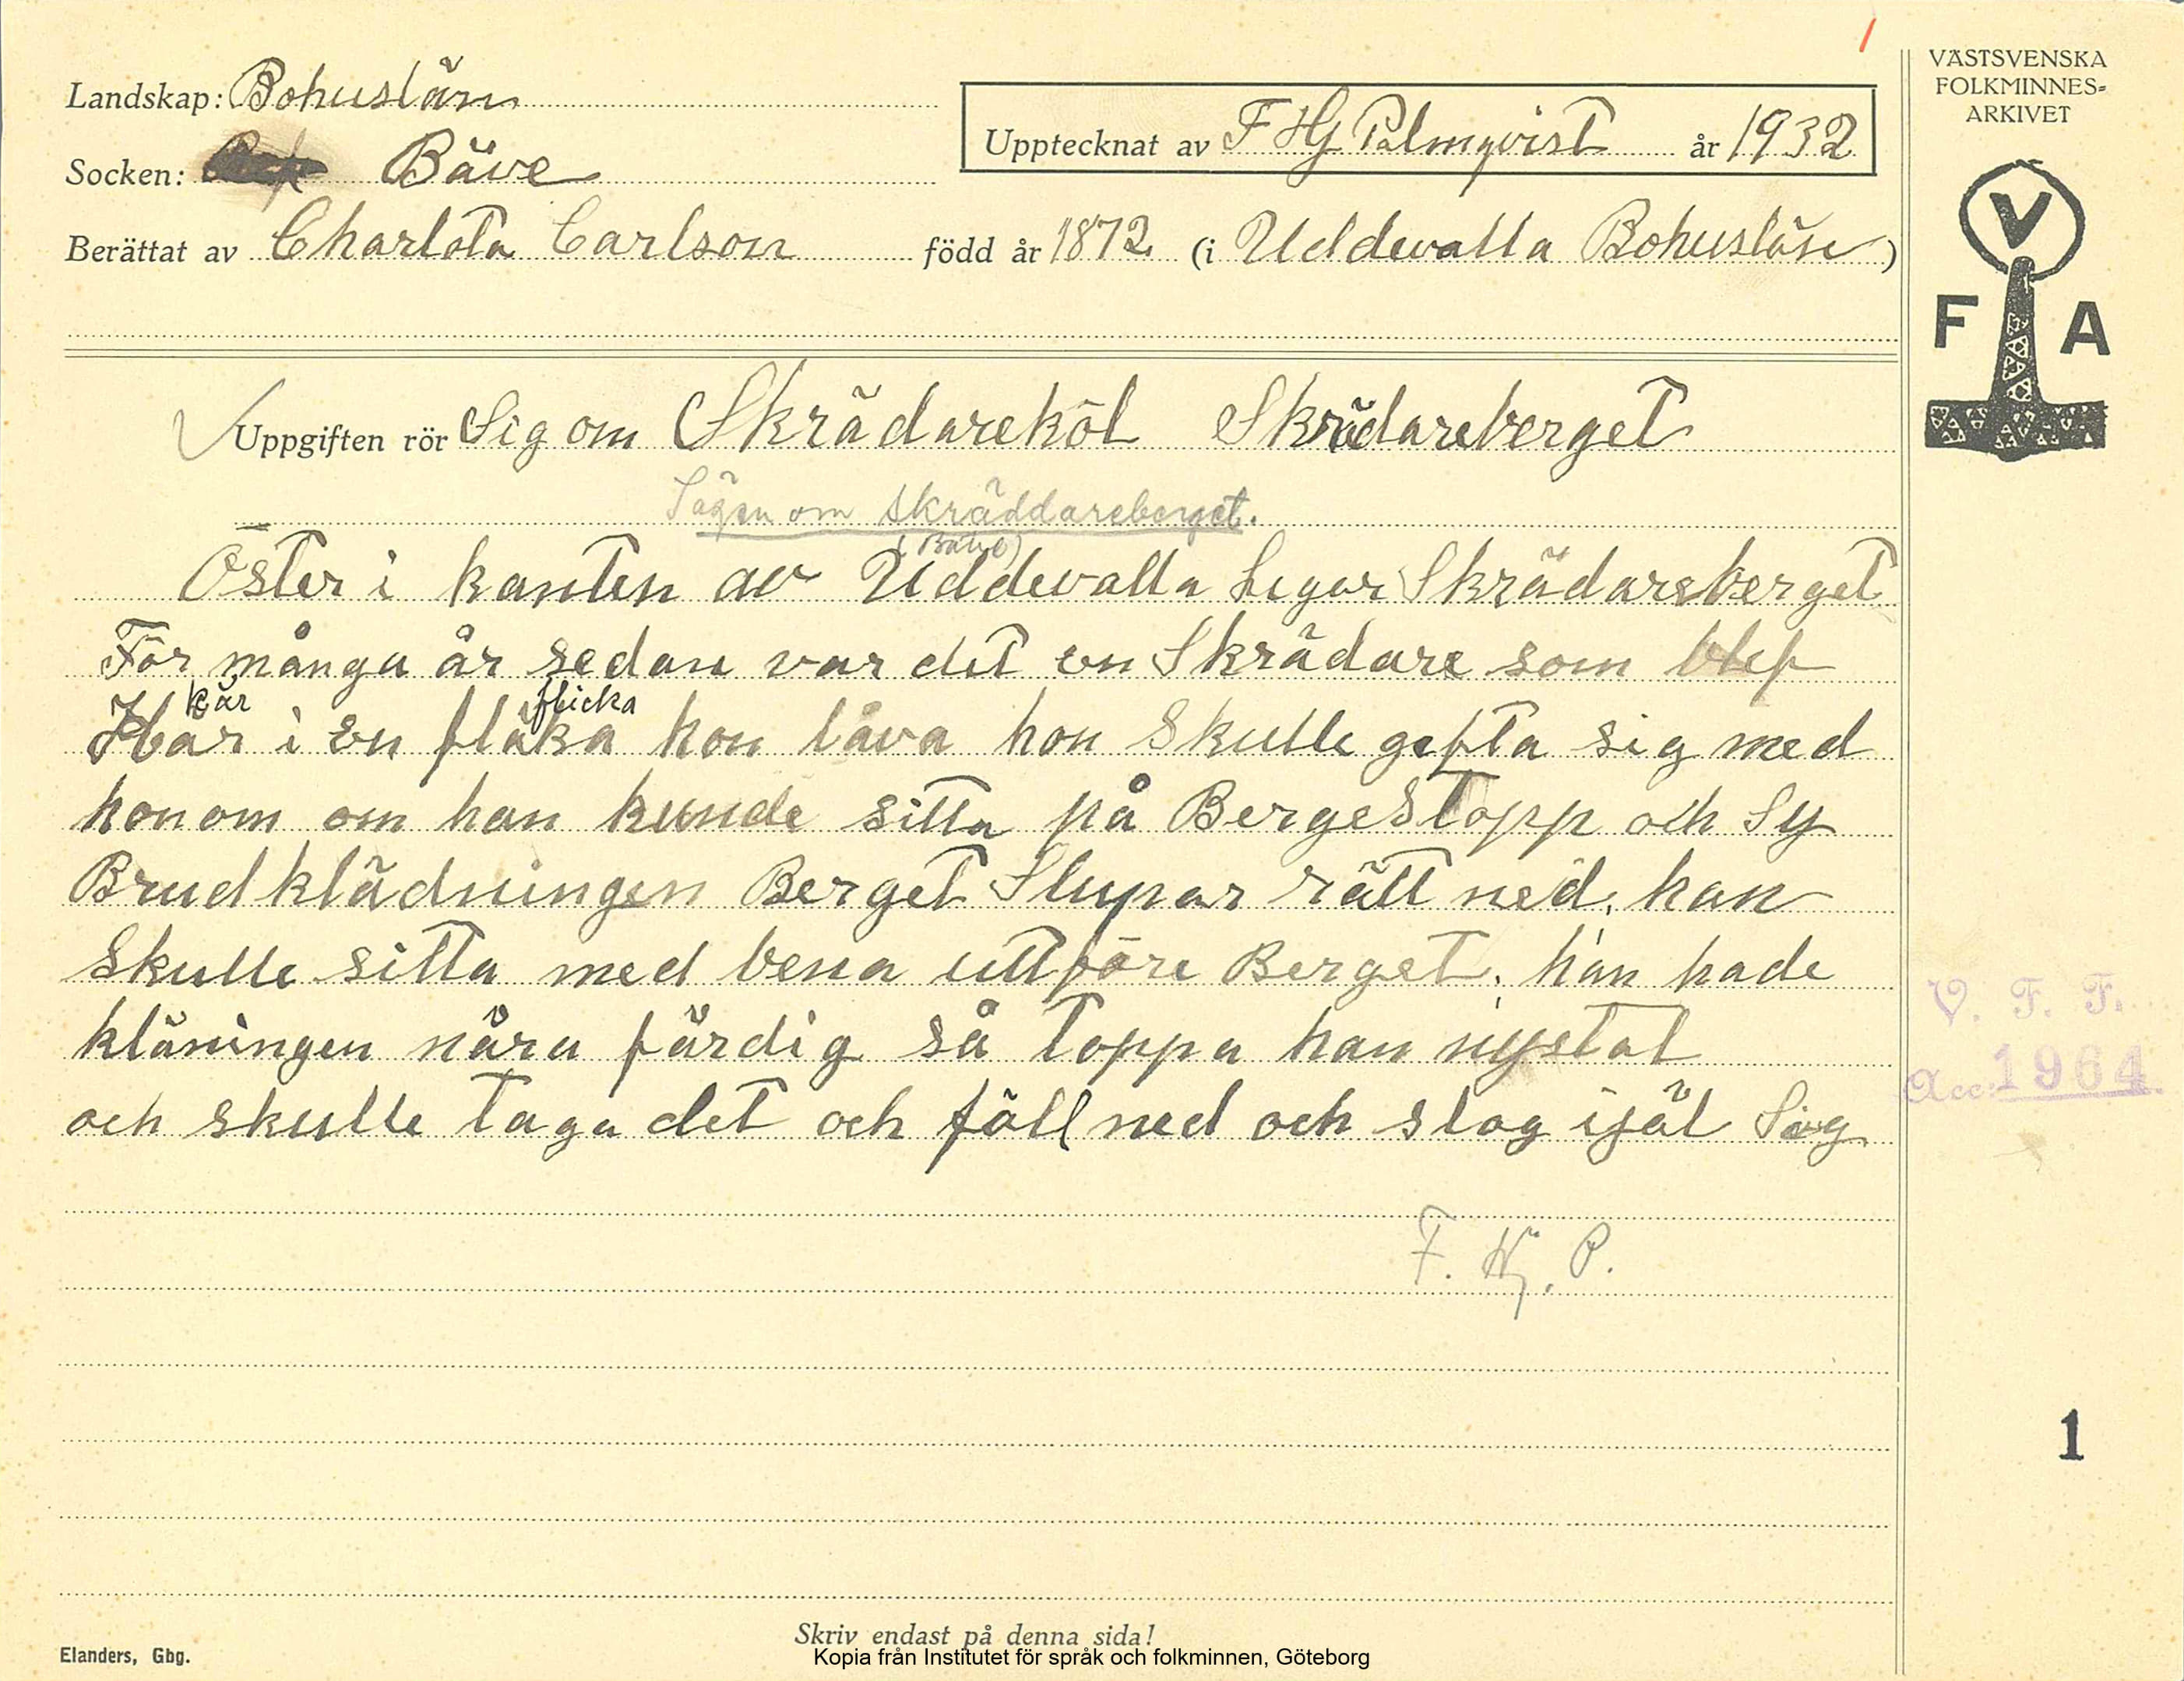 Landskap: Bohuslän
Socken: Bäve
Upptecknat av F Hj Palmqvist år 1932
Berättat av Charlota Carlson född år 1872 (i Uddevalla Bohuslän)
VÄSTSVENSKA
FOLKMINNES=
ARKIVET
V
F A
Uppgiften rör Sig om Skrädareköl Skrädareberget
Sägen om skräddareberget.
(Bäve)
Öster i kanten av Uddevalla Ligar Skrädareberget
För många år sedan var det en Skrädare som blef
kär flicka
Här i en fläka hon låva hon Skulle gefta sig med
honom om han kunde sitta på Bergestopp och Sy
Brudklädningen Berget Slupar rätt ned, han
Skulle sitta med bena utföre Berget, han hade
kläningen nära färdig så toppa han nystat
och skulle taga det och föll ned och slog ijäl Sig
F. Hj. P.
V. F. F.
Acc: 1964.
1
Skriv endast på denna sida!
Elanders, Gbg.
Kopia från Institutet för språk och folkminnen, Göteborg